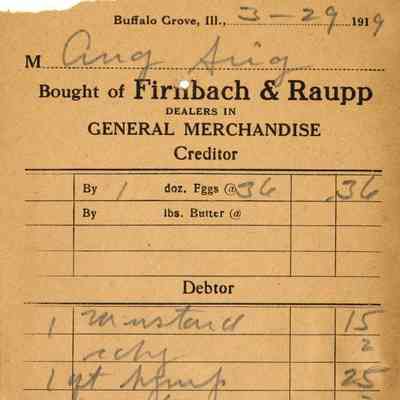 Buffalo Grove, Ill., 3-29 1919
M Aug
Bought of Firnbach & Raupp
DEALERS IN
GENERAL MERCHANDISE
Creditor
By 1 doz. Eggs @ 36 .36
By lbs. Butter @
Debtor
1 Mustard 15
2
1 qt 25